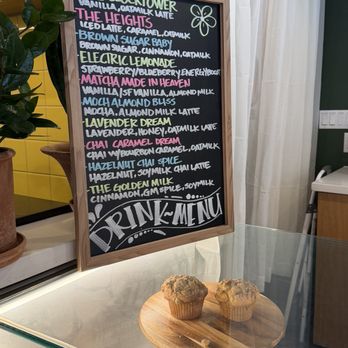 VANILLA, OATMILK LATTE
THE HEIGHTS
ICED LATTE, CARAMEL, OATMILK
BROWN SUGAR BABY
BROWN SUGAR, CINNAMON, OATMILK
ELECTRIC LEMONADE
STRAWBERRY/BLUEBERRY ENERGY
MATCHA MADE IN HEAVEN
VANILLA/SF VANILLA, ALMOND MILK
MOCH ALMOND BLISS
MOCHA, ALMOND MILK LATTE
LAVENDER DREAM
LAVENDER, HONEY, OATMILK LATTE
CHAI CARAMEL DREAM
CHAI W/BOURBON CARAMEL, OATMILK
HAZELNUT CHAI SPICE
HAZELNUT, SOYMILK CHAI LATTE
THE GOLDEN MILK
CINNAMON, GM SPICE, SOYMILK
DRINK-MENU